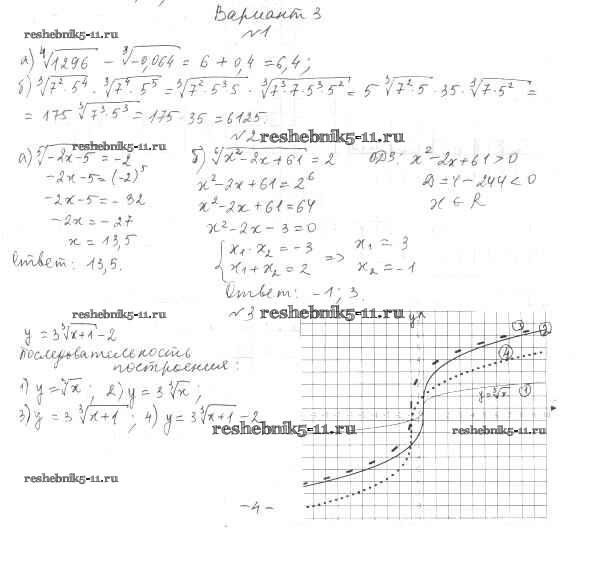 Вариант 3
reshebnik5-11.ru
№1
а) ⁴√1296 − ³√−0,064 = 6 + 0,4 = 6,4;
б) ³√7²·5⁴ · ³√7⁴·5⁵ = ³√7²·5³·5 · ³√7³·7·5³·5² = 5 ³√7²·5 · 35 · ³√7·5² =
= 175 ³√7³·5³ = 175·35 = 6125.
№2 reshebnik5-11.ru
а) ⁵√−2x−5 = −2
−2x−5 = (−2)⁵
−2x−5 = −32
−2x = −27
x = 13,5
Ответ: 13,5.
б) ⁶√x²−2x+61 = 2
x²−2x+61 = 2⁶
x²−2x+61 = 64
x²−2x−3 = 0
{ x₁·x₂ = −3 => x₁ = 3
x₁+x₂ = 2 x₂ = −1
Ответ: −1; 3.
ОДЗ: x²−2x+61 > 0
D = 4−244 < 0
x ∈ R
reshebnik5-11.ru
№3 reshebnik5-11.ru
y = 3³√x+1 −2
Последовательность
построения:
1) y = ³√x; 2) y = 3 ³√x;
3) y = 3 ³√x+1; 4) y = 3³√x+1 −2
reshebnik5-11.ru
y
③ ②
④
y = ³√x ①
reshebnik5-11.ru
reshebnik5-11.ru
-4-